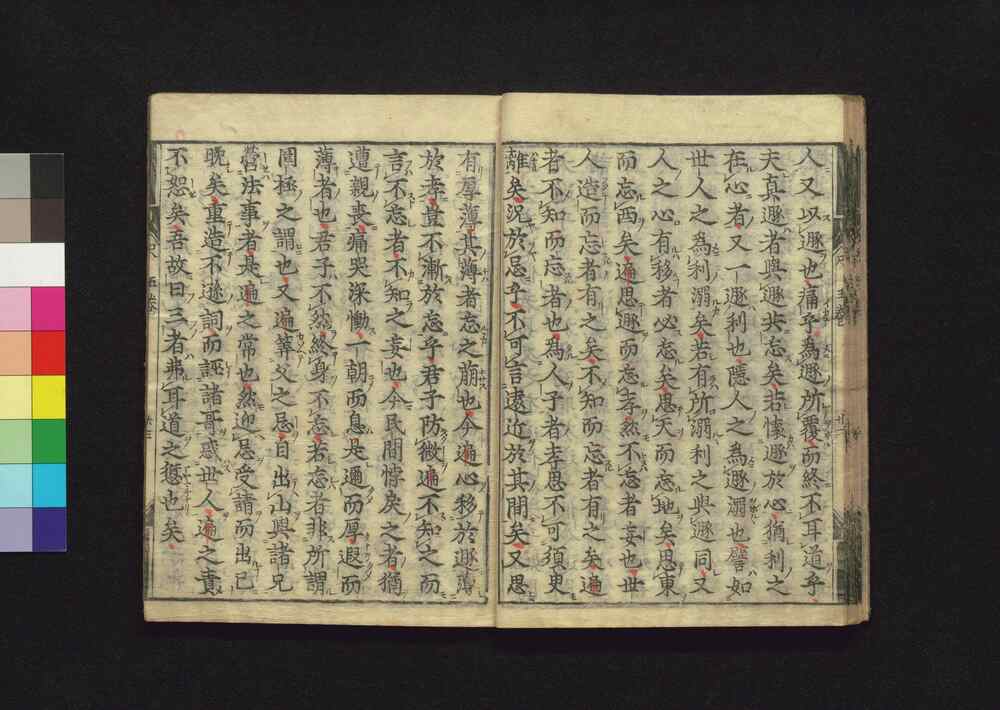 人又以遯也痛乎為遯所覆而終不耳道乎
夫真遯者與遯共忘矣若懷遯於心猶利之
在心者又一遯利也隱人之為遯溺也譬如
世人之為利溺矣若有所溺利之與遯同又
人之心有移者必忘矣思天而忘地矣思東
而忘西矣遍思遯而忘孝然不忘者妄也世
人造而忘者有之矣不知而忘者有之矣遍
者不知而忘者也為人子者孝思不可須臾
離矣況於忌乎不可言遠近於其間矣又思
有厚薄其薄者忘之萠也今遍心移於遯薄
於孝豈不漸於忘乎君子防微遍不知之而
言不忘者不知之妄也今民間悖戾之者猶
遭親喪痛哭深慟一朝而息是邇而厚遐而
薄者也君子不然終身不忘若忘者非所謂
罔極之謂也又遍葬父之忌自出山與諸兄
營法事者是遍之常也然迎忌受請而出已
晩矣重造不遜詞而誣諸哥惑世人遍之責
不恕矣吾故曰三者弗耳道之愆也矣